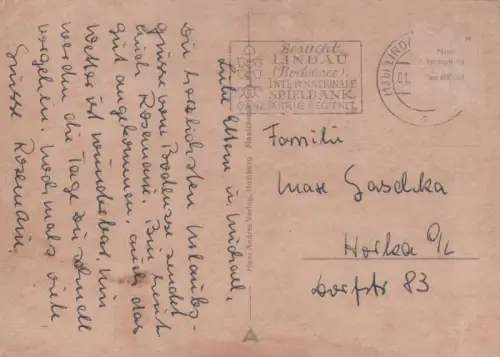 Liebe Eltern u. Michael,
Die herzlichsten Urlaubs-
grüsse vom Bodensee sendet
Euch Rosemarie. Bin heut
gut angekommen, auch das
Wetter ist wunderbar, nun
werden die Tage zu schnell
vergehen. Nochmals viele
Grüsse Rosemarie.
Hans Andres Verlag, Hamburg
Besucht
LINDAU
(Bodensee).
INTERNATIONALE
SPIELBANK
GANZJÄHRIG GEÖFFNET
(13b) LINDAU
01.
Familie
Max Gaschka
Horka O/L
Dorfstr 83